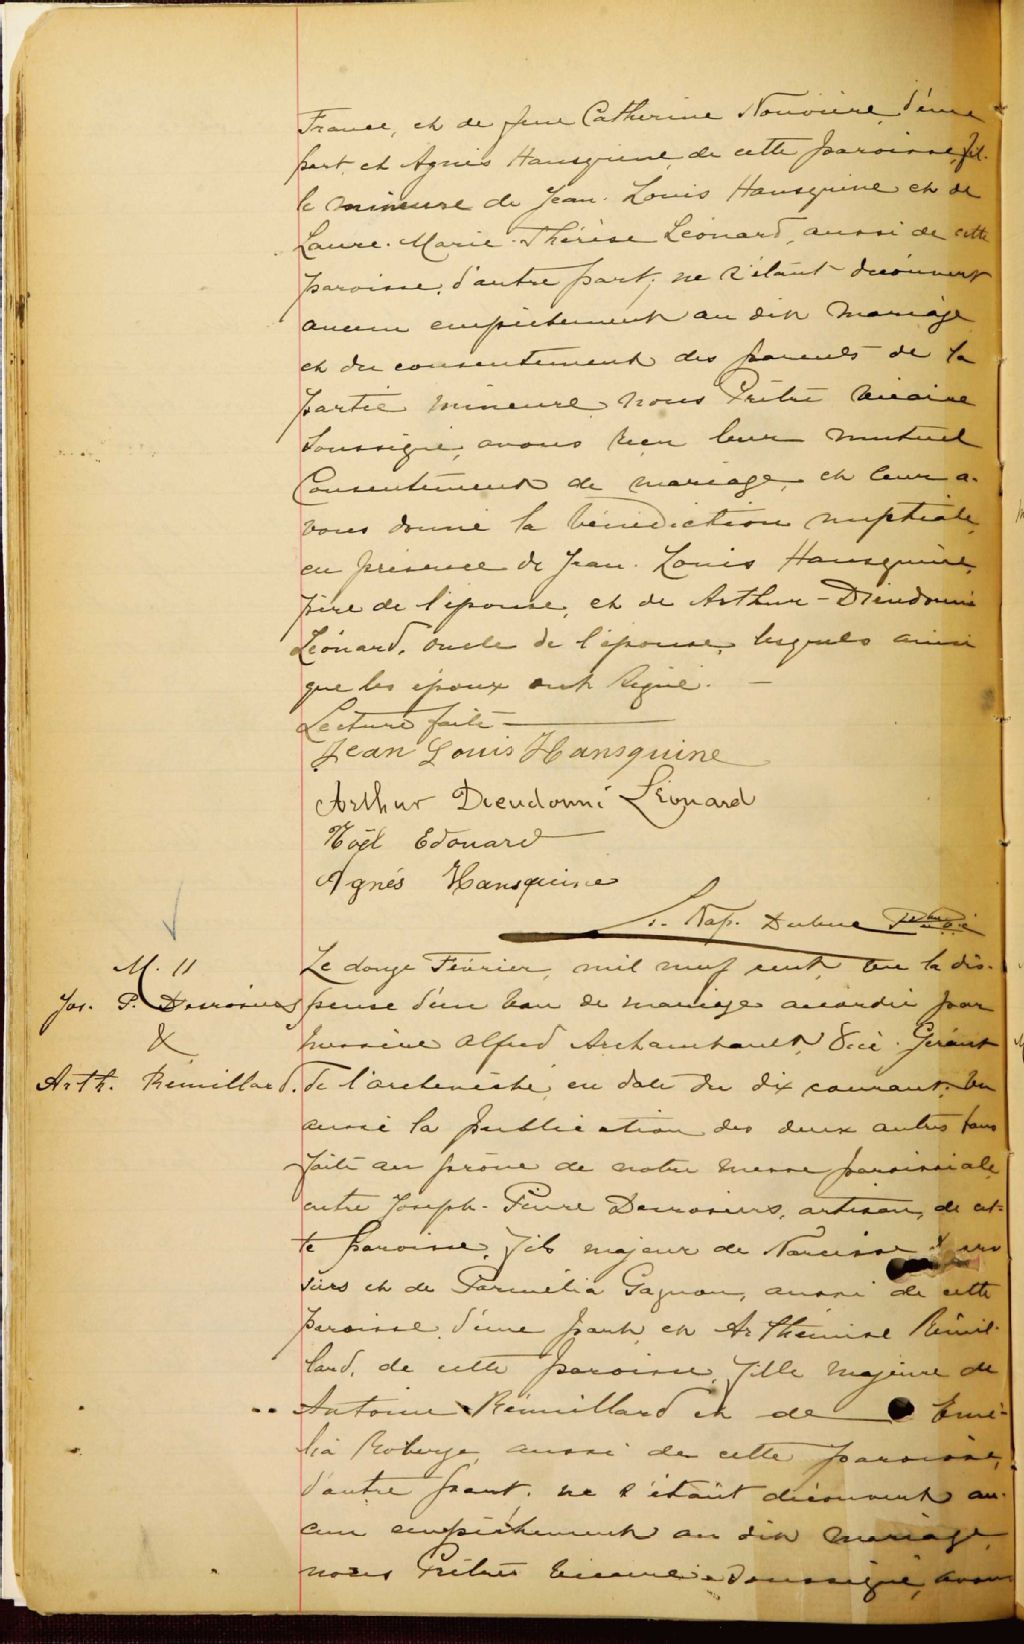 France, et de feue Catherine Nouvière, d'une
part, et Agnès Hansquine, de cette paroisse, fil-
le mineure de Jean-Louis Hansquine et de
Laure-Marie-Thérèse Léonard, aussi de cette
paroisse, d'autre part; ne s'étant découvert
aucun empêchement au dit mariage
et du consentement des parents de la
partie mineure, nous Prêtre Vicaire
Soussigné, avons reçu leur mutuel
Consentement de mariage, et leur a-
vons donné la bénédiction nuptiale,
en présence de Jean-Louis Hansquine,
père de l'épouse, et de Arthur-Dieudonné
Léonard, oncle de l'épouse, lesquels ainsi
que les époux ont signé. —
Lecture faite —
Jean Louis Hansquine
Arthur Dieudonné Léonard
Noël Edouard
Agnès Hansquine
L. Nap. Dubuc Ptre
M. 11
Jos. P. Desrosiers
&
Arth. Rémillard.
Le douze Février, mil neuf cent, vu la dis-
pense d'un ban de mariage accordée par
messire Alfred Archambault, Vice-Gérant
de l'archevêché, en date du dix courant; vu
aussi la publication des deux autres bans
faite au prône de notre messe paroissiale,
entre Joseph-Pierre Desrosiers, artisan, de cet-
te paroisse, fils majeur de Narcisse
siers et de Parmélia Gagnon, aussi de cette
paroisse, d'une part, et Arthémise Rémil-
lard, de cette paroisse, fille majeure de
Antoine Rémillard et de Emé-
lia Roberge, aussi de cette paroisse,
d'autre part; ne s'étant découvert au-
cun empêchement au dit mariage,
nous Prêtre Vicaire soussigné, avons